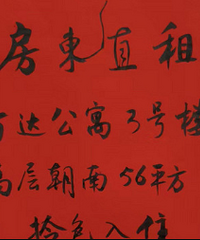 房東直租
万达公寓3号楼
高层朝南56平方
拎包入住